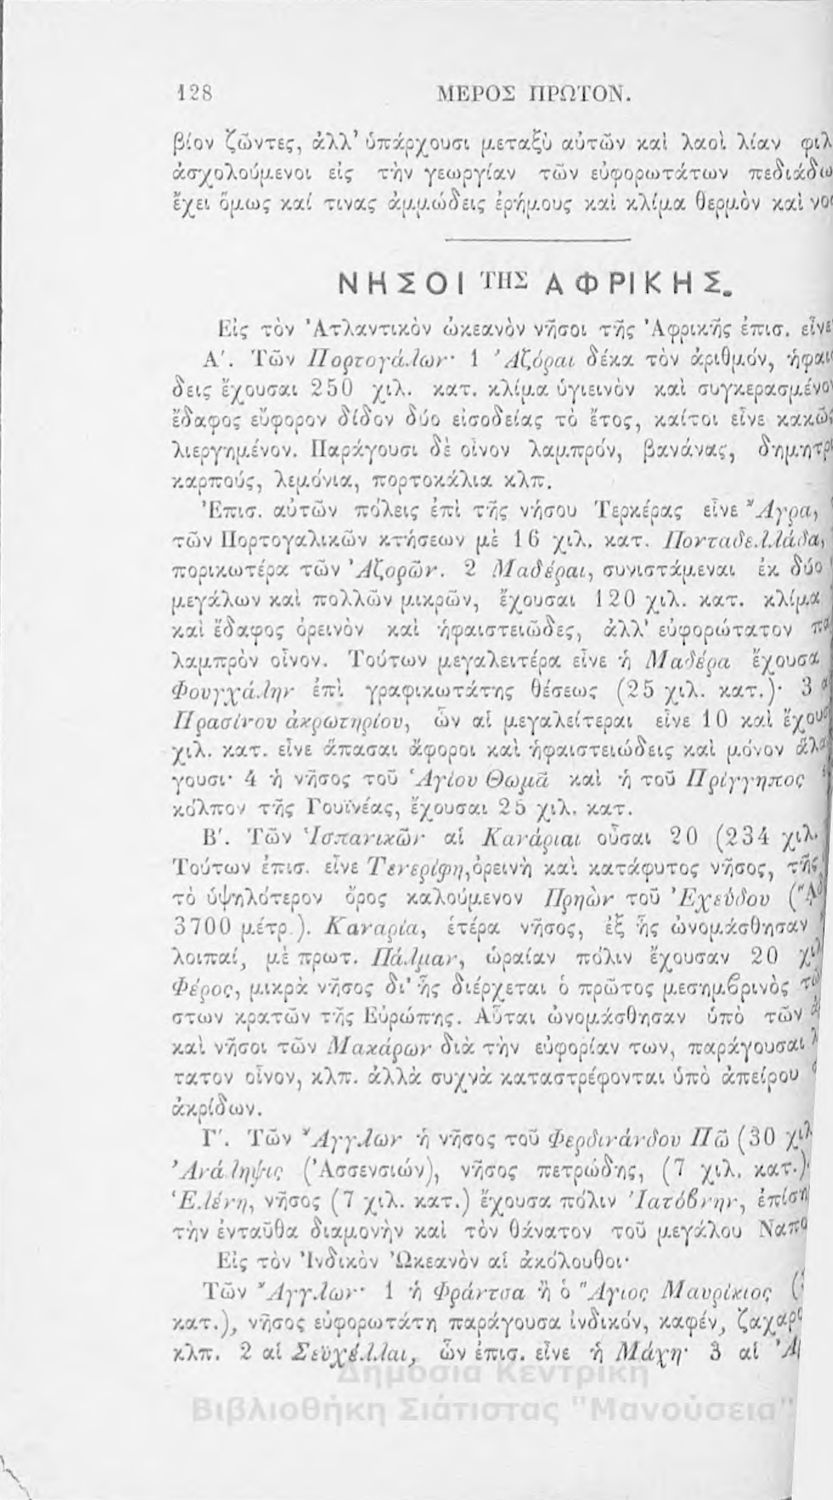 128 ΜΕΡΟΣ ΠΡΩΤΟΝ.
βίον ζῶντες, ἀλλ' ὑπάρχουσι μεταξὺ αὐτῶν καὶ λαοὶ λίαν φιλ
ἀσχολούμενοι εἰς τὴν γεωργίαν τῶν εὐφορωτάτων πεδιάδω
ἔχει ὅμως καί τινας ἀμμώδεις ἐρήμους καὶ κλίμα θερμὸν καὶ νο
ΝΗΣΟΙ ΤΗΣ ΑΦΡΙΚΗΣ.
Εἰς τὸν Ἀτλαντικὸν ὠκεανὸν νῆσοι τῆς Ἀφρικῆς ἐπισ. εἶνε
Α'. Τῶν Πορτογάλων· 1 Ἀζόραι δέκα τὸν ἀριθμόν, ἡφαι
δεις ἔχουσαι 250 χιλ. κατ. κλίμα ὑγιεινὸν καὶ συγκερασμένο
ἔδαφος εὔφορον δίδον δύο εἰσοδείας τὸ ἔτος, καίτοι εἶνε κακῶ
λιεργημένον. Παράγουσι δὲ οἶνον λαμπρόν, βανάνας, δημητρ
καρπούς, λεμόνια, πορτοκάλια κλπ.
Ἐπισ. αὐτῶν πόλεις ἐπὶ τῆς νήσου Τερκέρας εἶνε Ἄγρα,
τῶν Πορτογαλικῶν κτήσεων μὲ 16 χιλ. κατ. Πονταδελλάδα,
πορικωτέρα τῶν Ἀζορῶν. 2 Μαδέραι, συνιστάμεναι ἐκ δύο
μεγάλων καὶ πολλῶν μικρῶν, ἔχουσαι 120 χιλ. κατ. κλίμα
καὶ ἔδαφος ὀρεινὸν καὶ ἡφαιστειῶδες, ἀλλ' εὐφορώτατον
λαμπρὸν οἶνον. Τούτων μεγαλειτέρα εἶνε ἡ Μαδέρα ἔχουσα
Φουγχάλην ἐπὶ γραφικωτάτης θέσεως (25 χιλ. κατ.)· 3
Πρασίνου ἀκρωτηρίου, ὧν αἱ μεγαλείτεραι εἶνε 10 καὶ ἔχου
χιλ. κατ. εἶνε ἅπασαι ἄφοροι καὶ ἡφαιστειώδεις καὶ μόνον ἅλα
γουσι· 4 ἡ νῆσος τοῦ Ἁγίου Θωμᾶ καὶ ἡ τοῦ Πρίγγηπος
κόλπον τῆς Γουϊνέας, ἔχουσαι 25 χιλ. κατ.
Β'. Τῶν Ἱσπανικῶν αἱ Κανάριαι οὖσαι 20 (234 χιλ.
Τούτων ἐπισ. εἶνε Τενερίφη, ὀρεινὴ καὶ κατάφυτος νῆσος, τῆς
τὸ ὑψηλότερον ὄρος καλούμενον Πρηὼν τοῦ Ἐχεύδου
3700 μέτρ.). Καναρία, ἑτέρα νῆσος, ἐξ ἧς ὠνομάσθησαν
λοιπαί, μὲ πρωτ. Πάλμαν, ὡραίαν πόλιν ἔχουσαν 20
Φέρος, μικρὰ νῆσος δι' ἧς διέρχεται ὁ πρῶτος μεσημβρινὸς
στων κρατῶν τῆς Εὐρώπης. Αὗται ὠνομάσθησαν ὑπὸ τῶν
καὶ νῆσοι τῶν Μακάρων διὰ τὴν εὐφορίαν των, παράγουσαι
τατον οἶνον, κλπ. ἀλλὰ συχνὰ καταστρέφονται ὑπὸ ἀπείρου
ἀκρίδων.
Γ'. Τῶν Ἄγγλων ἡ νῆσος τοῦ Φερδινάνδου Πῶ (30 χιλ
Ἀνάληψις (Ἀσσενσιών), νῆσος πετρώδης, (7 χιλ. κατ.)
Ἑλένη, νῆσος (7 χιλ. κατ.) ἔχουσα πόλιν Ἰατόβνην, ἐπίση
τὴν ἐνταῦθα διαμονὴν καὶ τὸν θάνατον τοῦ μεγάλου Ναπο
Εἰς τὸν Ἰνδικὸν Ὠκεανὸν αἱ ἀκόλουθοι·
Τῶν Ἄγγλων· 1 ἡ Φράντσα ἢ ὁ Ἅγιος Μαυρίκιος
κατ.), νῆσος εὐφορωτάτη παράγουσα ἰνδικόν, καφέν, ζαχαρ
κλπ. 2 αἱ Σεϋχέλλαι, ὧν ἐπισ. εἶνε ἡ Μάχη· 3 αἱ
Δημόσια Κεντρική
Βιβλιοθήκη Σιάτιστας "Μανούσεια"